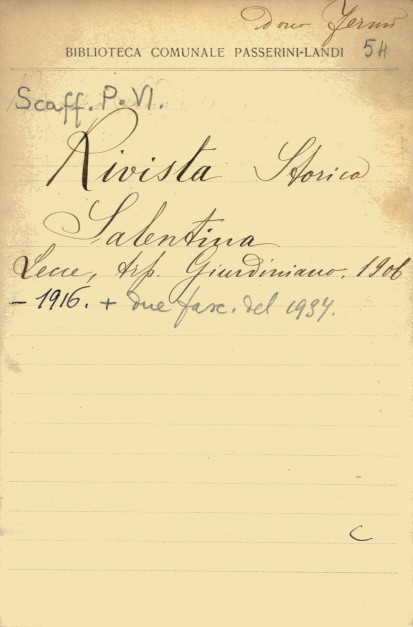 Dono
BIBLIOTECA COMUNALE PASSERINI-LANDI 54
Scaff. P. VI.
Rivista Storica
Salentina
Lecce, tip. Giurdiniano. 1906
- 1916. + due fasc. del 1934.
C